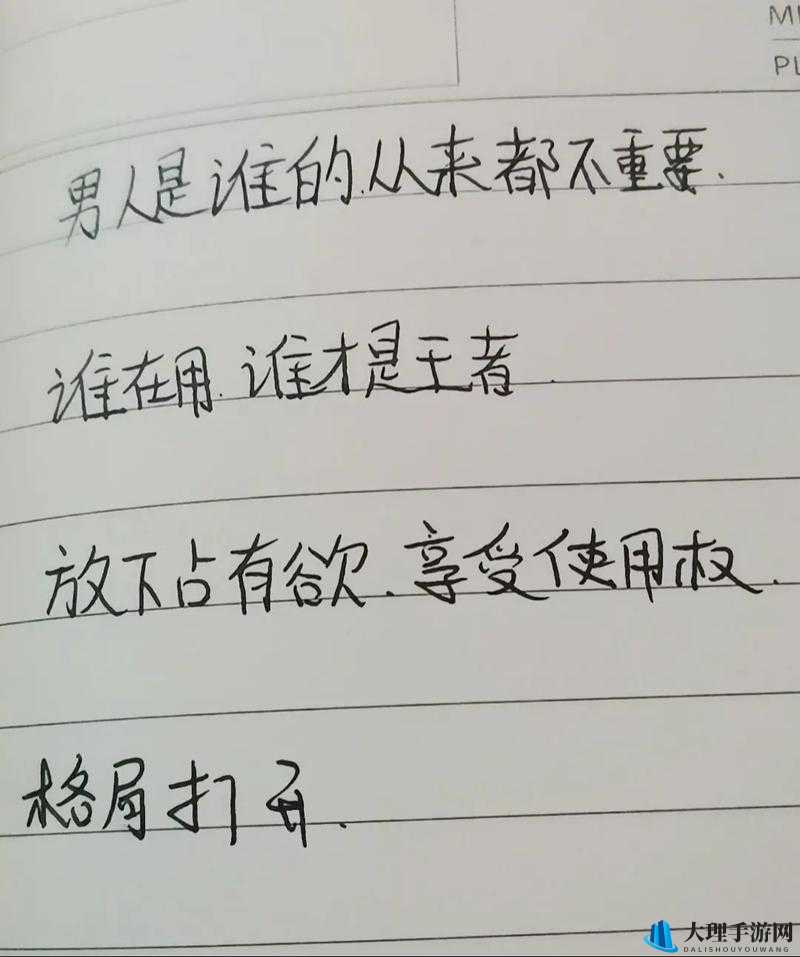 MI
PL
男人是谁的.从来都不重要.
谁在用.谁才是王者.
放下占有欲.享受使用权.
格局打开.
大理手游网
DALISHOUYOUWANG